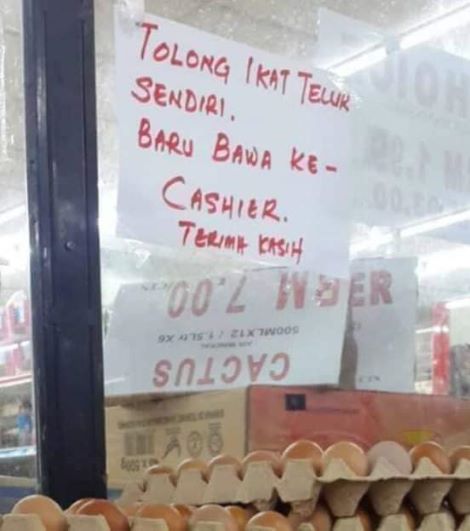 TOLONG IKAT TELUR
SENDIRI.
BARU BAWA KE-
CASHIER.
TERIMA KASIH
RM 7.00
ER
500MLX12 / 1.5Ltr X6
CACTUS